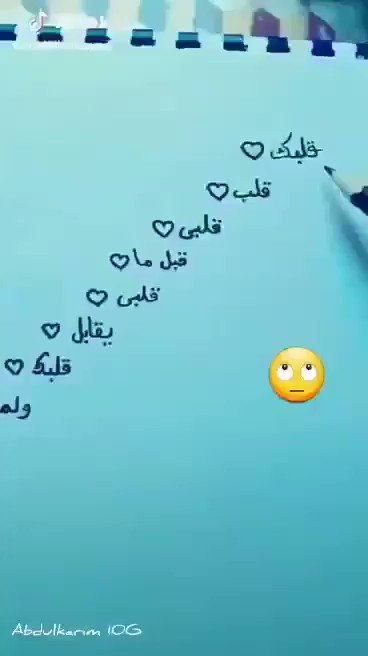 قلبك ♡
قلب ♡
قلبى ♡
قبل ما ♡
قلبى ♡
يقابل ♡
قلبك ♡
Abdulkarim IOG